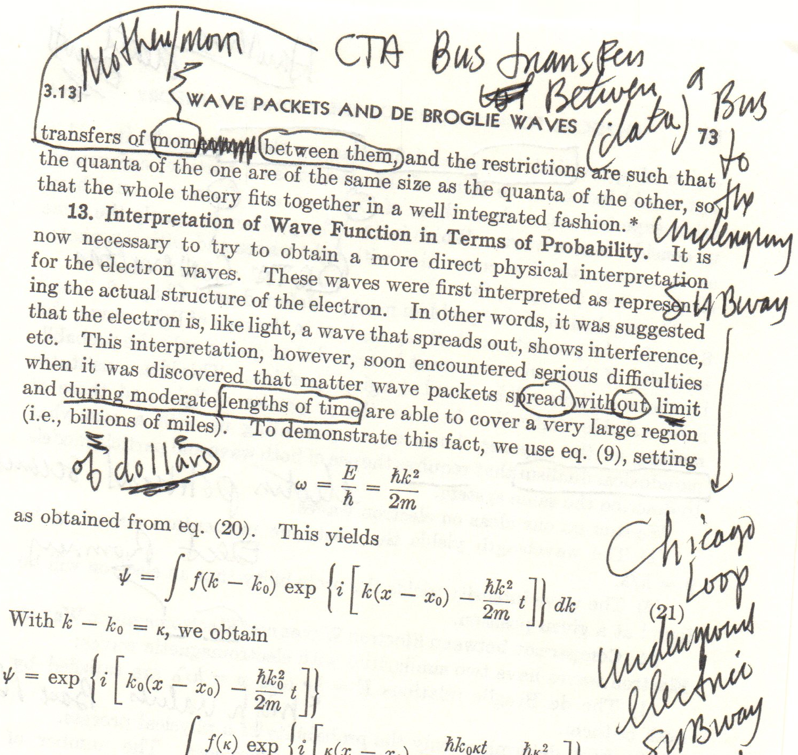 Mother/mom
CTA Bus transfer
Between a Bus
(data)
to
the
Underground
SUBway
3.13]
WAVE PACKETS AND DE BROGLIE WAVES
73
transfers of mom between them, and the restrictions are such that
the quanta of the one are of the same size as the quanta of the other, so
that the whole theory fits together in a well integrated fashion.*
13. Interpretation of Wave Function in Terms of Probability. It is
now necessary to try to obtain a more direct physical interpretation
for the electron waves. These waves were first interpreted as represent-
ing the actual structure of the electron. In other words, it was suggested
that the electron is, like light, a wave that spreads out, shows interference,
etc. This interpretation, however, soon encountered serious difficulties
when it was discovered that matter wave packets spread without limit
and during moderate lengths of time are able to cover a very large region
(i.e., billions of miles). To demonstrate this fact, we use eq. (9), setting
of dollars
ω = E/ħ = ħk²/2m
as obtained from eq. (20). This yields
ψ = ∫ f(k − k₀) exp {i [k(x − x₀) − ħk²/2m t]} dk
(21)
With k − k₀ = κ, we obtain
ψ = exp {i [k₀(x − x₀) − ħk₀²/2m t]}
∫ f(κ) exp {i [κ(x − x₀) ħk₀κt ħκ²
Chicago
Loop
Underground
electric
SUBway